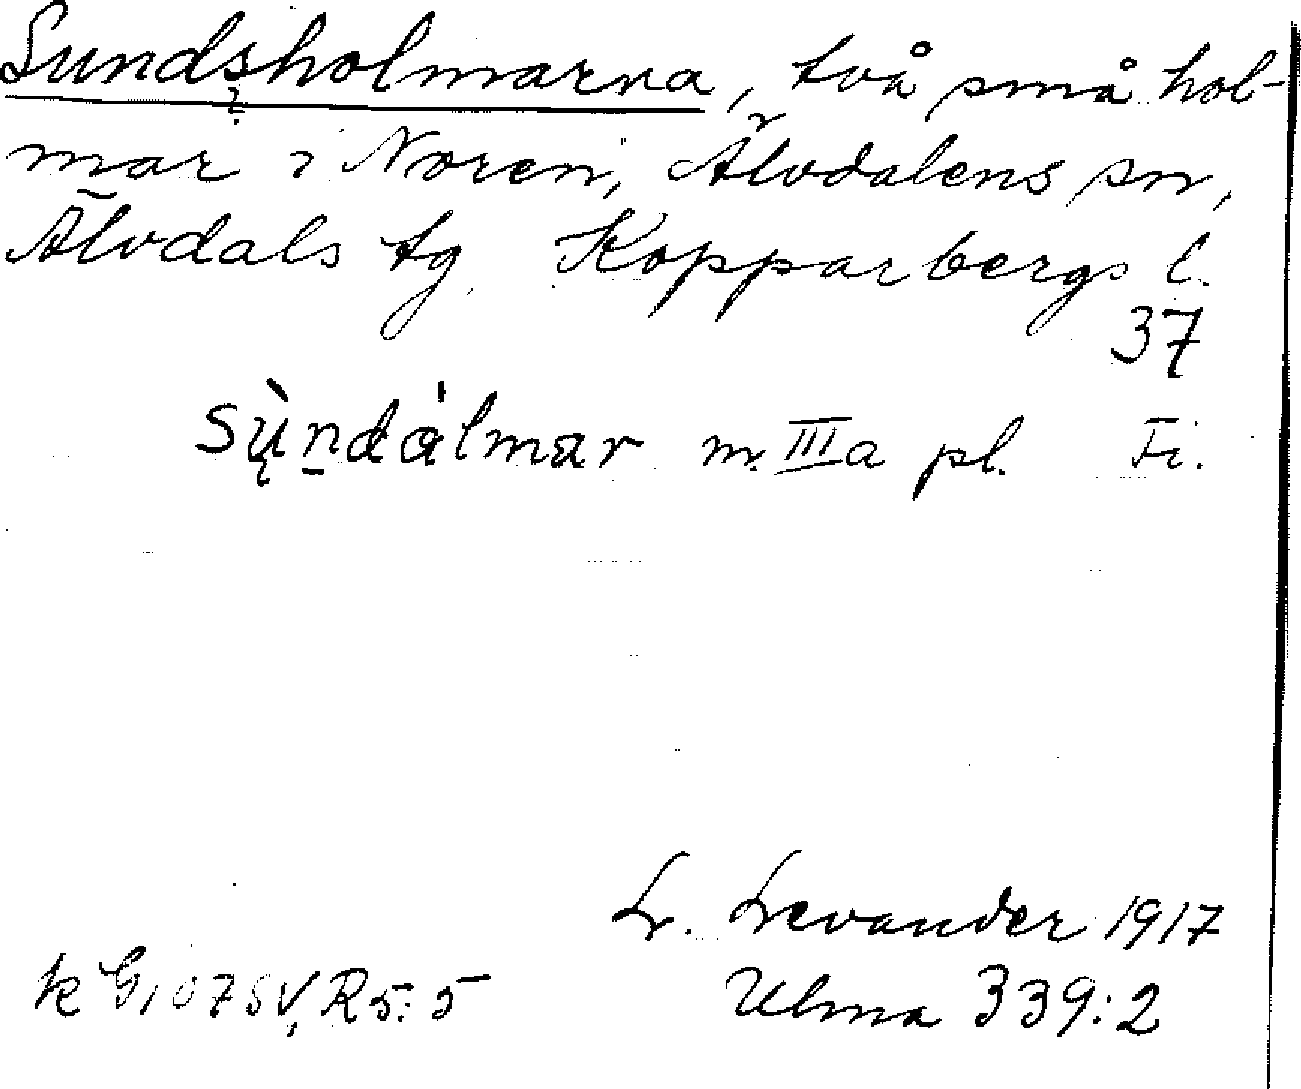 Sundsholmarna, två små hol-
mar i Noren, Älvdalens sn,
Älvdals tg Kopparbergs l.
37
sų̀ndálmar m. IIIa pl. Fi.
L. Levander 1917
k G, 107 SV, R 5:5 Ulma 339:2